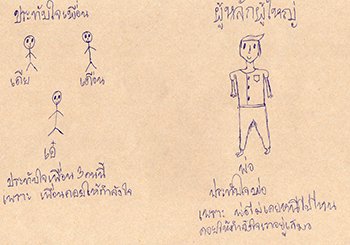 ประทับใจเพื่อน
เดีย เดือน
เอ๋
ประทับใจเพื่อน 3 คนนี้
เพราะ เพื่อนคอยให้กำลังใจ
ผู้หลักผู้ใหญ่
พ่อ
ประทับใจพ่อ
เพราะ พ่อไม่เคยหนีไปไหน
คอยให้กำลังใจเราอยู่เสมอ